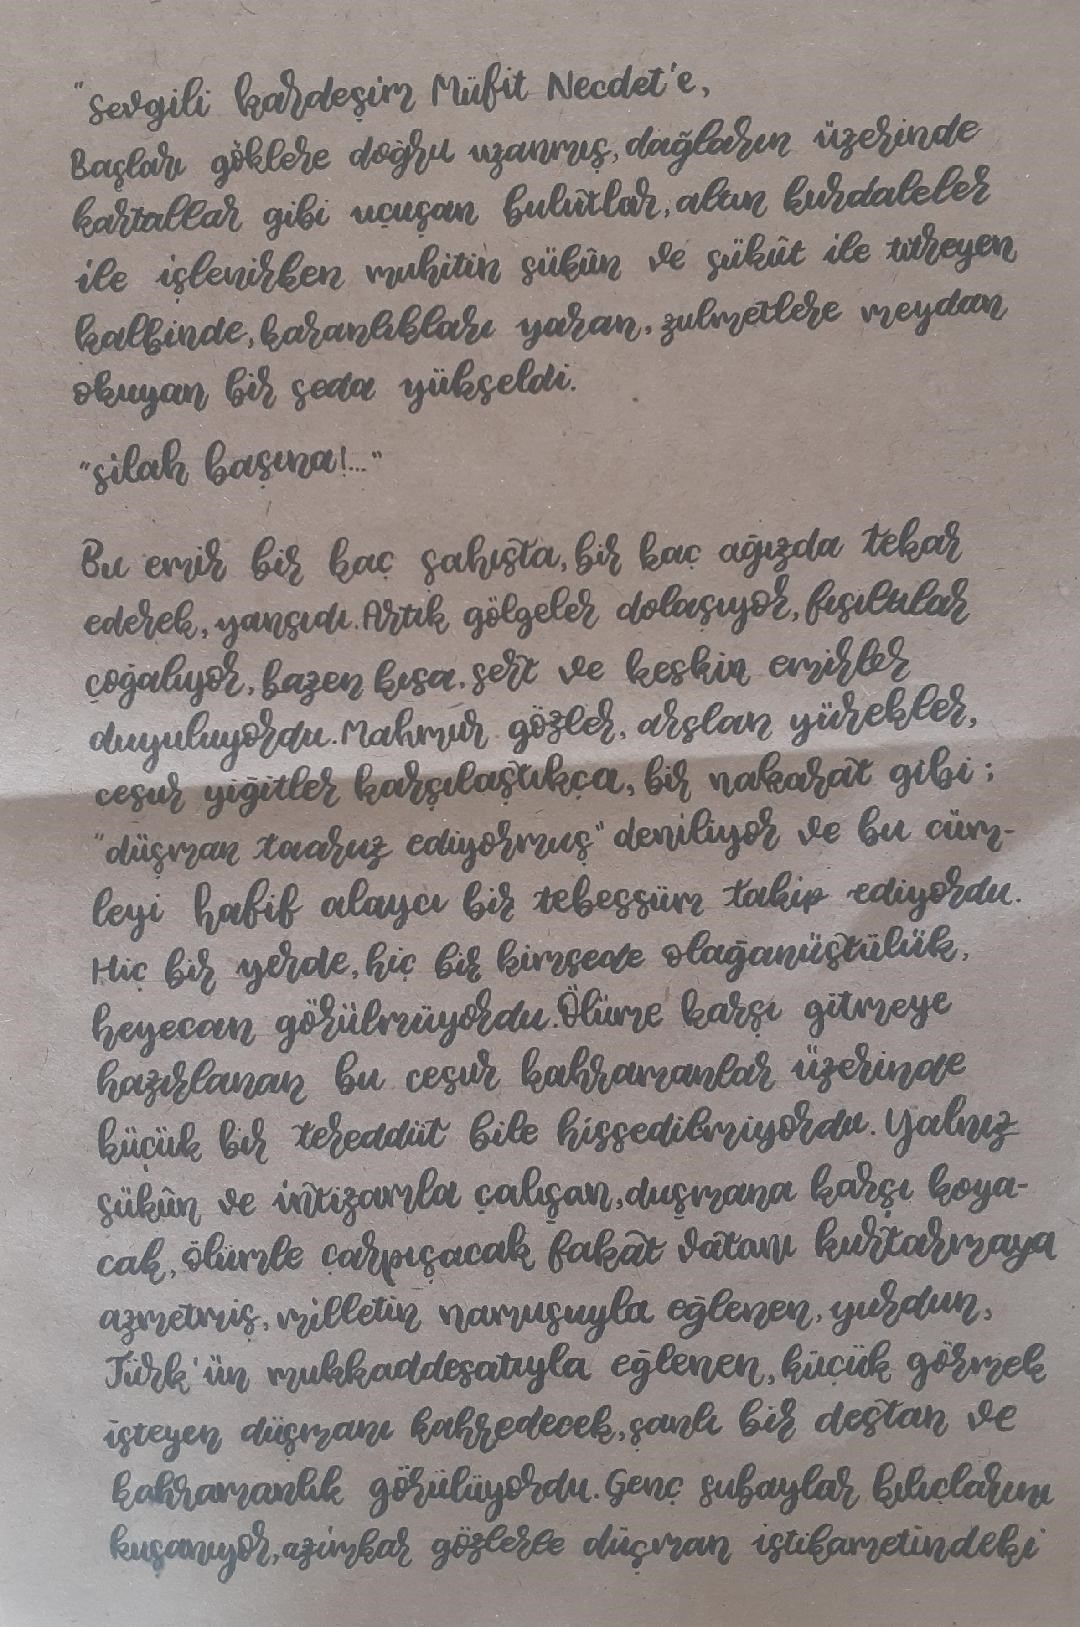 "Sevgili kardeşim Müfit Necdet'e,
Başları göklere doğru uzanmış, dağların üzerinde
kartallar gibi uçuşan bulutlar, altın kurdaleler
ile işlenirken muhitin sükûn ve sükût ile titreyen
kalbinde, karanlıkları yaran, zulmetlere meydan
okuyan bir seda yükseldi.
"Silah başına!..."
Bu emir bir kaç şahısta, bir kaç ağızda tekar
ederek, yansıdı. Artık gölgeler dolaşıyor, fısıltılar
çoğalıyor, bazen kısa, sert ve keskin emirler
duyuluyordu. Mahmur gözler, arslan yürekler,
cesur yiğitler karşılaştıkça, bir nakarat gibi;
"düşman taaruz ediyormuş" deniliyor ve bu cüm-
leyi hafif alaycı bir tebessüm takip ediyordu.
Hiç bir yerde, hiç bir kimsede olağanüstülük,
heyecan görülmüyordu. Ölüme karşı gitmeye
hazırlanan bu cesur kahramanlar üzerinde
küçük bir tereddüt bile hissedilmiyordu. Yalnız
sükûn ve intizamla çalışan, duşmana karşı koya-
cak, ölümle çarpışacak fakat vatanı kurtarmaya
azmetmiş, milletin namusuyla eğlenen, yurdun,
Türk'ün mukkaddesatıyla eğlenen, küçük görmek
isteyen düşmanı kahredecek, şanlı bir destan ve
kahramanlık görülüyordu. Genç subaylar kılıçlarını
kuşanıyor, azimkar gözlerle düşman istikametindeki